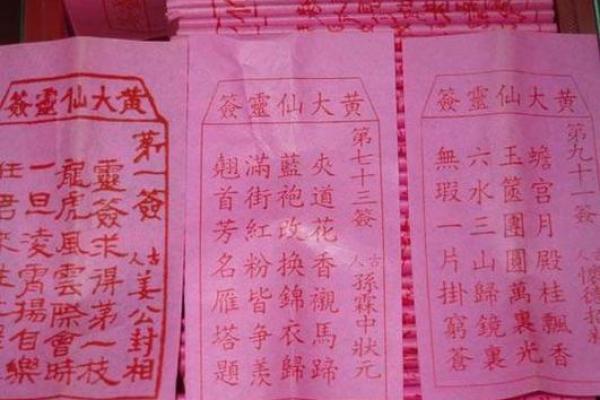 黃大仙靈簽
第一簽
古人 姜公封相
靈簽求得第一枝
龍虎風雲際會時
一旦凌霄揚自樂
任君來
黃大仙靈簽
第七十三簽
古人 孫霖中狀元
夾道花香襯馬蹄
藍袍改換錦衣歸
滿街紅粉皆爭羨
翹首芳名雁塔題
黃大仙靈簽
第九十一簽
古人 懷德招
蟾宮月殿桂飄香
玉篋團圓萬裏光
六水三山歸鏡裏
無瑕一片掛窮蒼